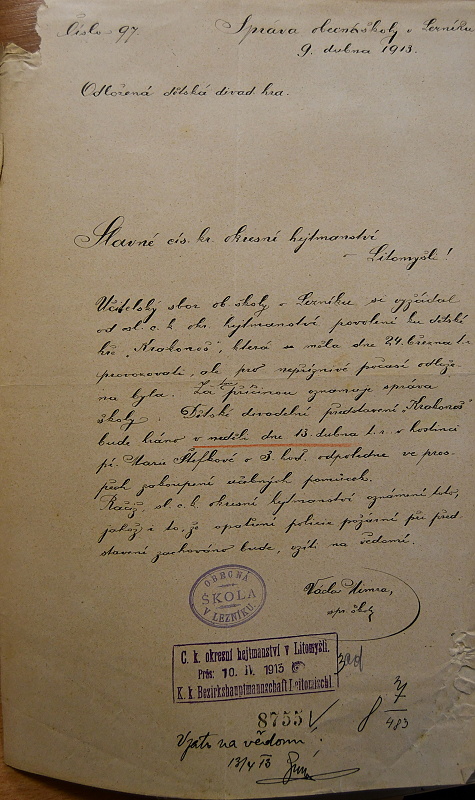 Číslo 97. Správa obecné školy v Lezníku
9. dubna 1913.
Odložená dětská divad. hra.
Slavné cís. kr. okresní hejtmanství
v Litomyšli!
Učitelský sbor ob. školy v Lezníku si vyžádal
od sl. c. k. okr. hejtmanství povolení ku dětské
hře „Krakonoš", která se měla dne 24. března t. r.
provozovati, ale pro nepříznivé počasí odlože-
na byla. Za tou příčinou oznamuje správa
školy: Dětské divadelní představení „Krakonoš"
bude hráno v neděli dne 13. dubna t. r. v hostinci
pí. Marie Štefkové o 3. hod. odpoledne ve pros-
pěch zakoupení učebných pomůcek.
Račiž sl. c. k. okresní hejtmanství oznámení toto,
jakož i to, že opatření policie požární při před
stavení zachováno bude, vzíti na vědomí.
OBECNÁ
ŠKOLA
V LEZNÍKU.
spr. školy
C. k. okresní hejtmanství v Litomyšli.
Präs: 10. IV. 1913
K. k. Bezirkshauptmannschaft Leitomischl.
8755
8 7/483
na vědomí
13/4 13